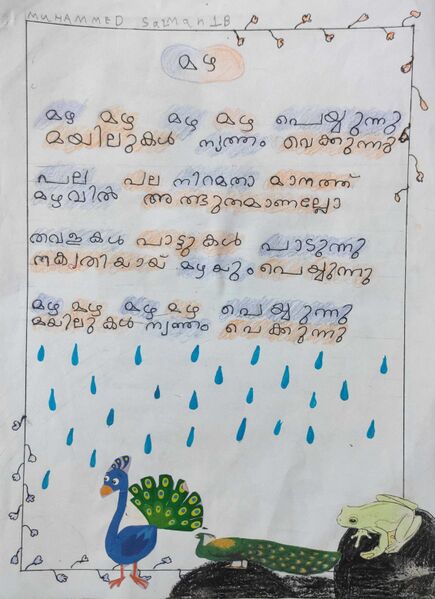 MUHAMMED Salman 1B
മഴ
മഴ മഴ മഴ മഴ പെയ്യുന്നു
മയിലുകൾ നൃത്തം വെക്കുന്നു
പല പല നിറമതാ മാനത്ത്
മഴവിൽ അത്ഭുതമാണല്ലോ
തവളകൾ പാട്ടുകൾ പാടുന്നു
തകൃതിയായ് മഴയും പെയ്യുന്നു
മഴ മഴ മഴ മഴ പെയ്യുന്നു
മയിലുകൾ നൃത്തം വെക്കുന്നു